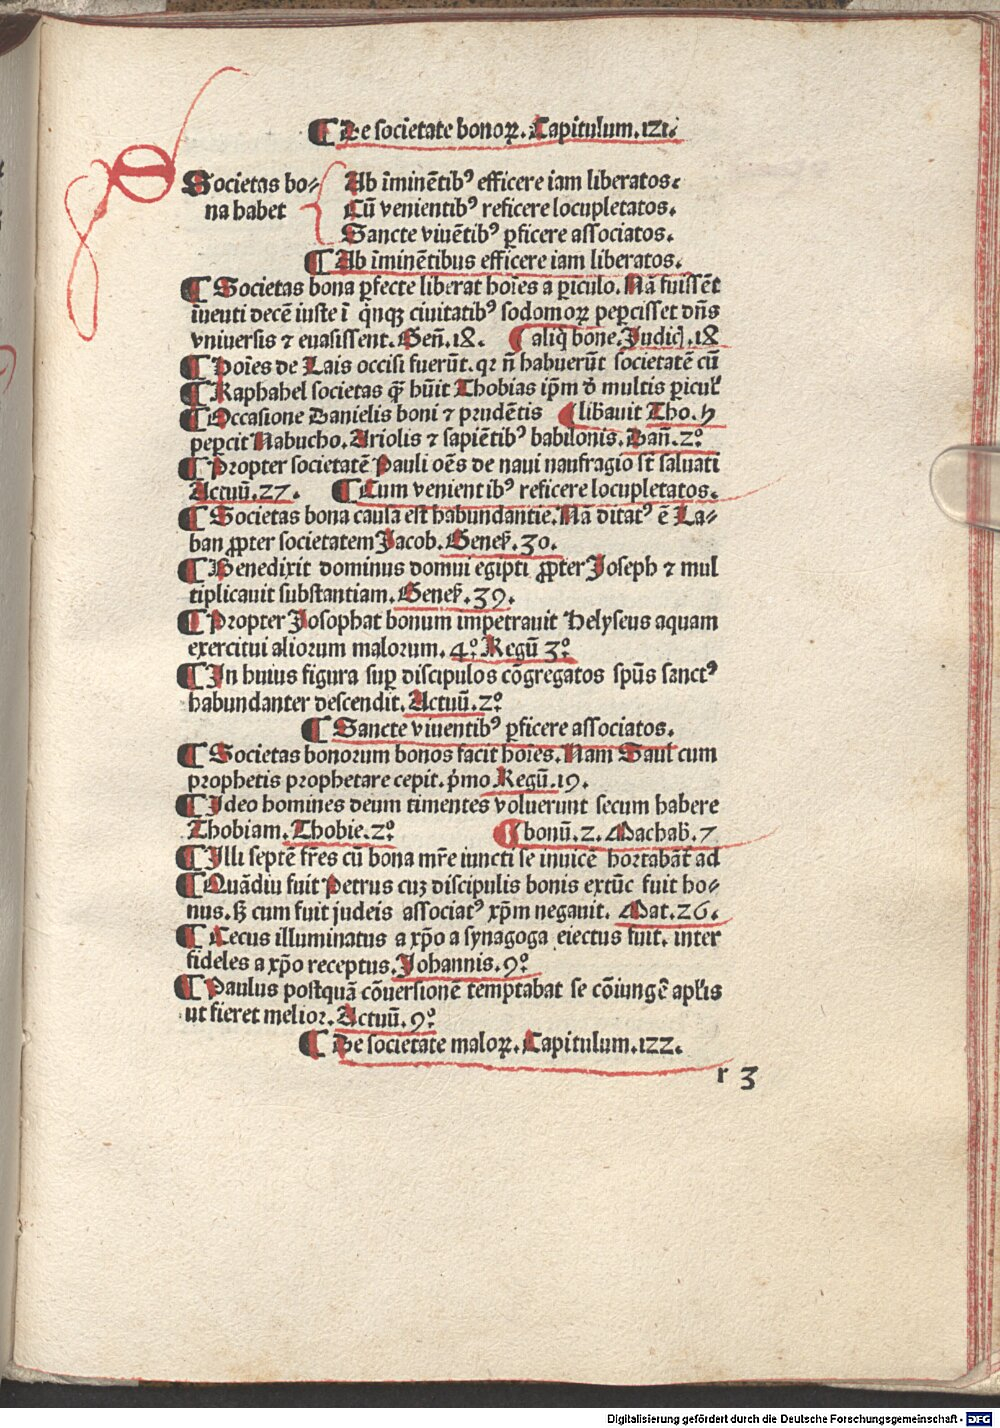 ¶ De societate bonoꝝ. Capitulum. 121.
Societas bo-
na habet
Ab īminētibꝰ efficere iam liberatos.
Cū venientibꝰ reficere locupletatos.
Sancte viuētibꝰ ꝑficere associatos.
¶ Ab īminētibus efficere iam liberatos.
¶ Societas bona ꝑfecte liberat hoīes a ꝑiculo. Nā fuissēt
īuenti decē iuste ī qͥnqꝫ ciuitatibꝰ sodomoꝝ peꝑcisset dn̄s
vniuersis ⁊ euasissent. Gen̄. 18. ¶ aliq̄ bone. Judicꝭ. 18
¶ Poīes de Lais occisi fuerūt. qꝛ n̄ habuerūt societatē cū
¶ Raphahel societas qᷓ hūit Thobias ip̄m đ multis ꝑicul̓
¶ Occasione Danielis boni ⁊ prudētis ¶ lib̄auit Tho. 5
peꝑcit Nabucho. Ariolis ⁊ sapiētibꝰ babilonis. Dan̄. 2°
¶ Propter societatē Pauli oēs de naui naufragio st̄ saluati
Actuū. 27. ¶ Cum venientibꝰ reficere locupletatos.
¶ Societas bona causa est habundantie. Na ditatꝰ ē La-
ban ꝓpter societatem Jacob. Genes̓. 30.
¶ Benedixit dominus domui egipti ꝓpter Joseph ⁊ mul
tiplicauit substantiam. Genes̓. 39.
¶ Propter Josophat bonum impetrauit Helyseus aquam
exercitui aliorum malorum. 4° Regū 3°
¶ In huius figura suꝑ discipulos cōgregatos sp̄us sanctꝰ
habundanter descendit. Actuū. 2°
¶ Sancte viuentibꝰ ꝑficere associatos.
¶ Societas bonorum bonos facit hoīes. Nam Saul cum
prophetis prophetare cepit. pͥmo Regū. 19.
¶ Ideo homines deum timentes voluerunt secum habere
Thobiam. Thobie. 2° ¶ bonū. 2. Machab̄. 7
¶ Illi septē fr̄es cū bona mr̄e iuncti se inuicē hortabāt̄ ad
¶ Quādiu fuit Petrus cuꝫ discipulis bonis extūc fuit bo-
nus. sꝫ cum fuit judeis associatꝰ xp̄m negauit. Mat. 26.
¶ Cecus illuminatus a xp̄o a synagoga eiectus fuit. inter
fideles a xp̄o receptus. Johannis. 9°
¶ Paulus postquā cōuersionē temptabat se cōiungē apl̄is
ut fieret melior. Actuū. 9°
¶ De societate maloꝝ. Capitulum. 122.
r 3
Digitalisierung gefördert durch die Deutsche Forschungsgemeinschaft - DFG